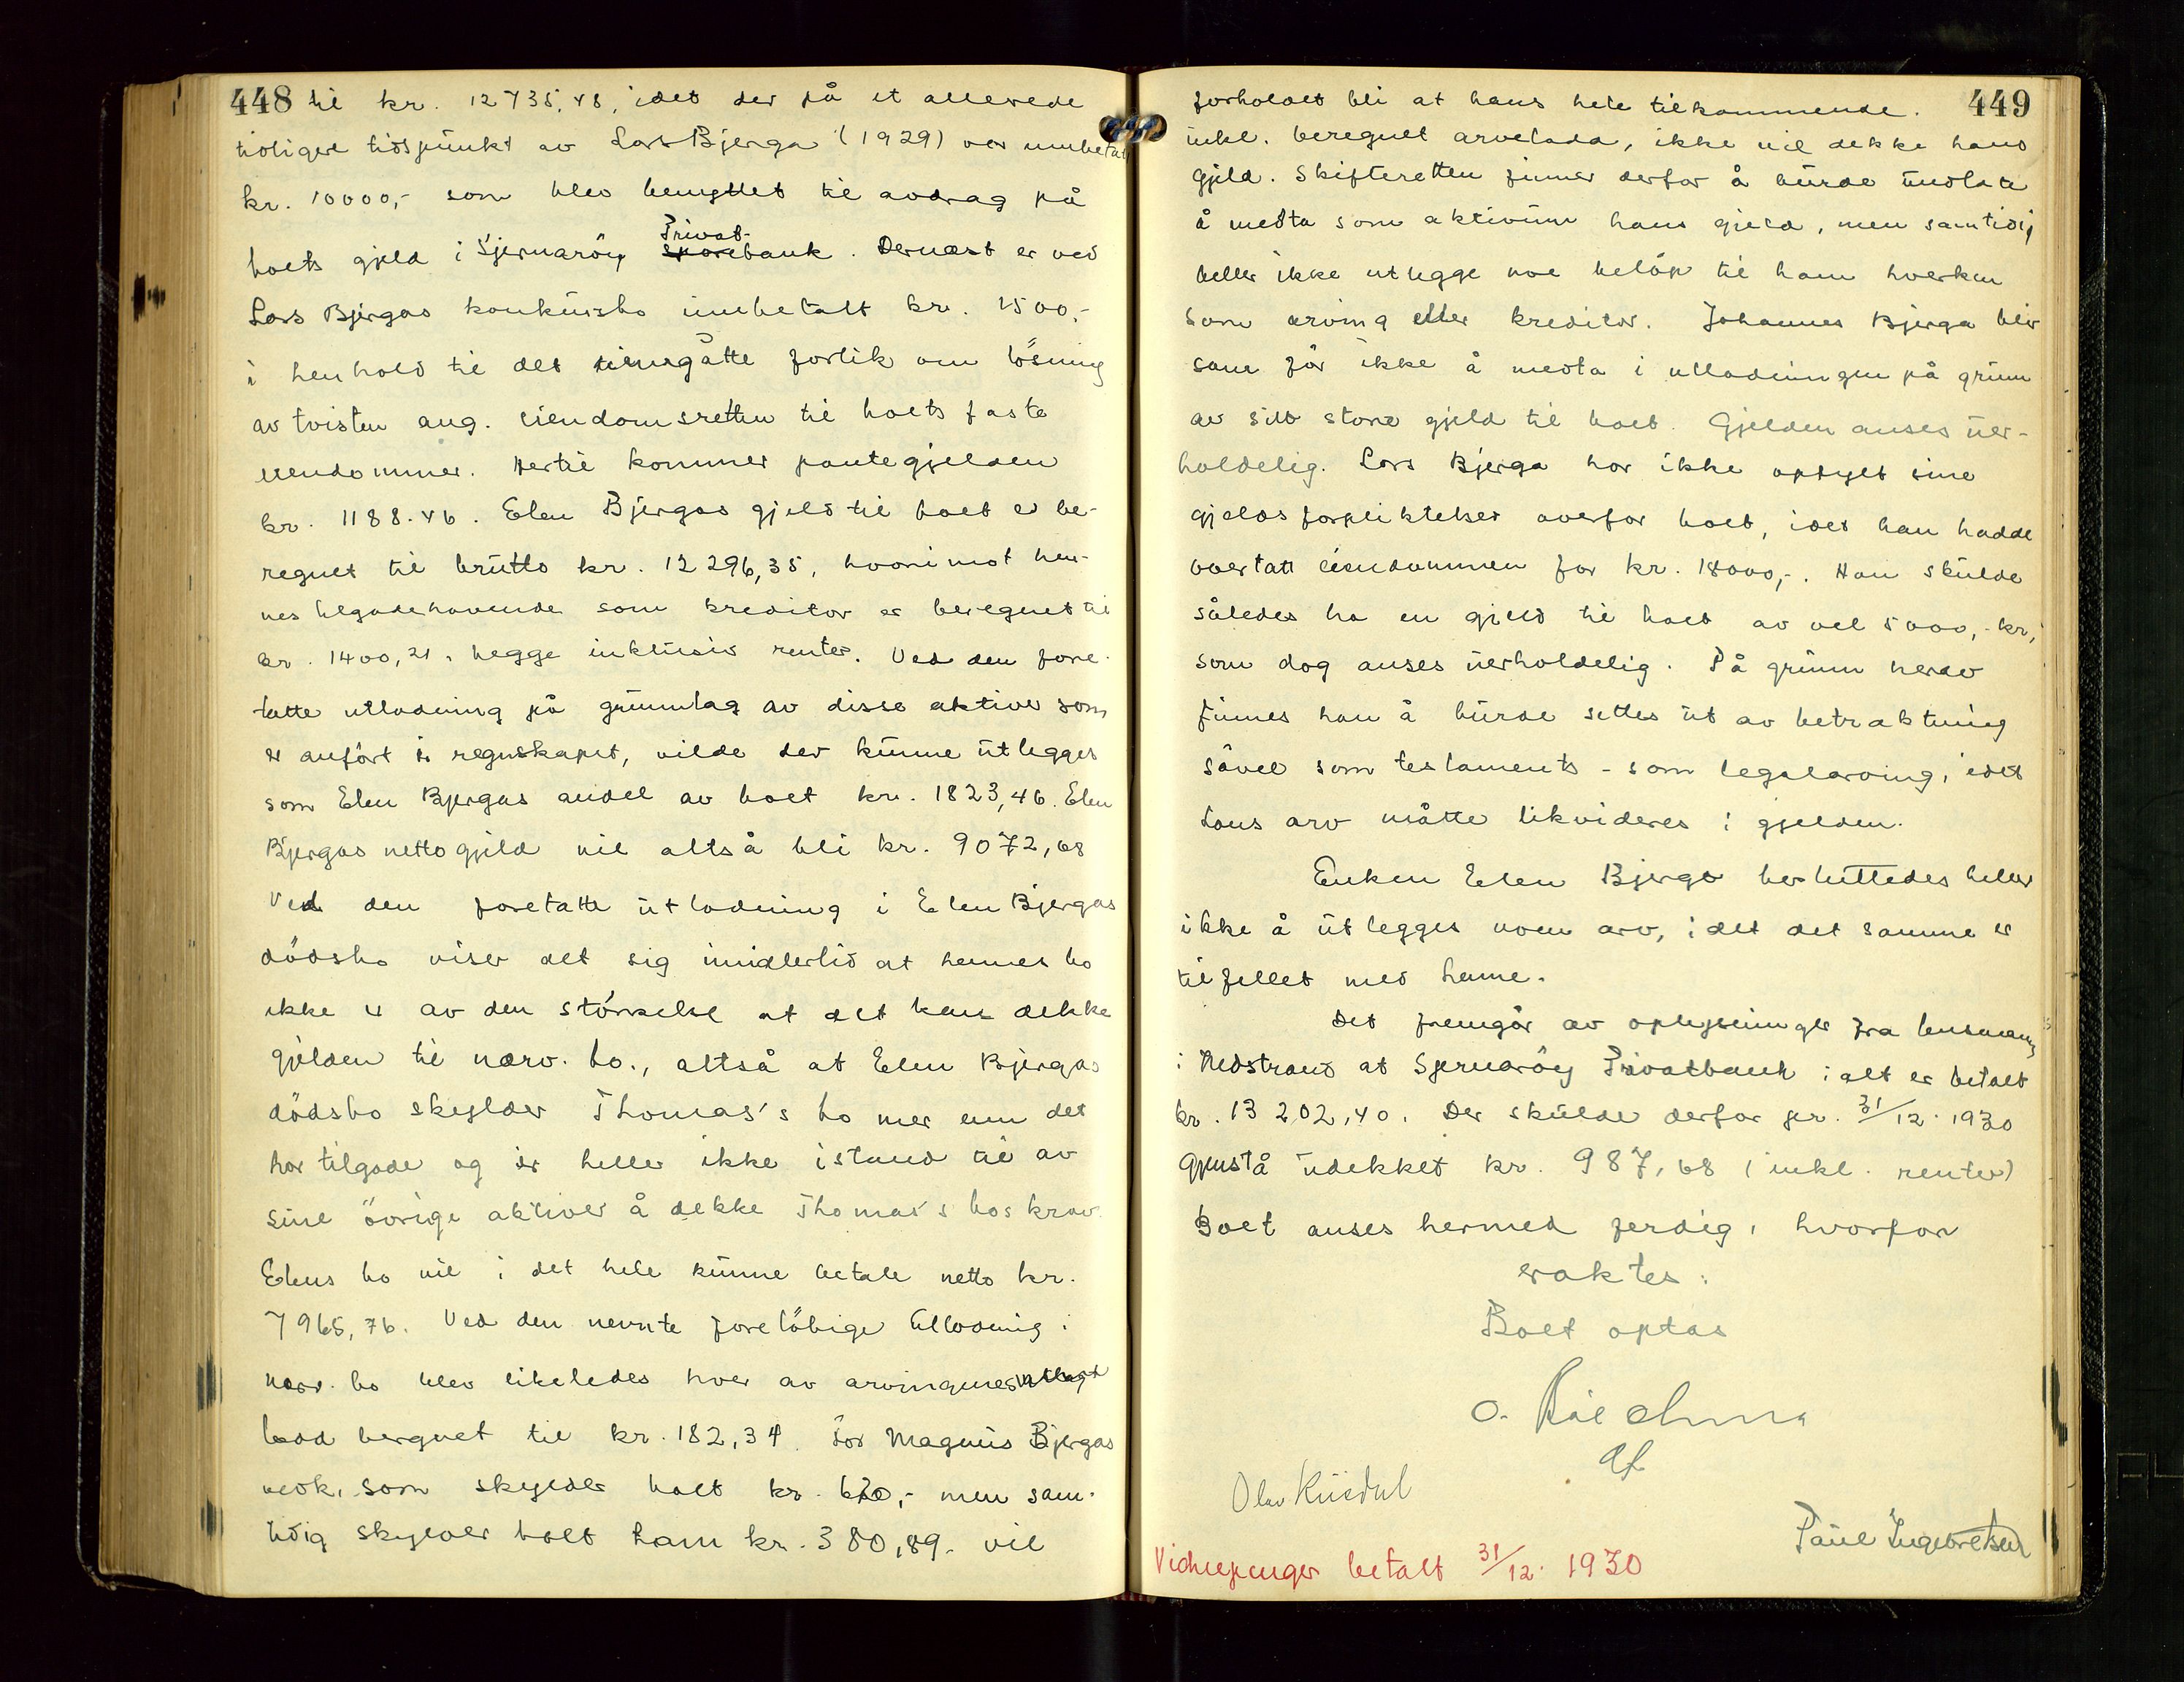 448 til kr. 12735,48, idet der på et allerede
tidligere tidspunkt av Lars Bjerga (1929) var innbetalt
kr. 10000,- som blev benyttet til avdrag på
Privat-
boets gjeld i Sjernarøy sparebank. Dernæst er ved
Lars Bjergas konkursbo innbetalt kr. 1500,-
i henhold til det inngåtte forlik om løsning
av tvisten ang. eiendomsretten til boets faste
eiendommer. Hertil kommer pantegjelden
kr. 1188.46. Elen Bjergas gjeld til boet er be-
regnet til brutto kr. 12296,35, hvorimot hen-
nes tilgodehavende som kreditor er beregnet til
kr. 1400,21, begge inklusiv renter. Ved den fore-
tatte utlodning på grunnlag av disse aktiver som
er anført i regnskapet, vilde der kunne utlegges
som Elen Bjergas andel av boet kr. 1823,46. Elen
Bjergas netto gjeld vil altså bli kr. 9072,68
Ved den foretatte utlodning i Elen Bjergas
dødsbo viser det sig imidlertid at hennes bo
ikke er av den størrelse at det kan dekke
gjelden til nærv. bo., altså at Elen Bjergas
dødsbo skylder Thomas's bo mer enn det
har tilgode og er heller ikke istand til av
sine øvrige aktiver å dekke Thomas's bos krav.
Elens bo vil i det hele kunne betale netto kr.
7965,76. Ved den nevnte foreløbige utlodning i
nærv. bo blev likeledes hver av arvingenes utlagt
lodd beregnet til kr. 182,34. For Magnus Bjergas
vedk. som skylder boet kr. 620,- men sam-
tidig skylder boet ham kr. 380,89. vil
forholdet bli at hans hele tilkommende. 449
inkl. beregnet arvelodd, ikke vil dekke hans
gjeld. Skifteretten finner derfor å burde undlate
å medta som aktivum hans gjeld, men samtidig
heller ikke utlegge noe beløp til ham hverken
som arving eller kreditor. Johannes Bjerga blir
sam før ikke å medta i utlodningen på grunn
av sin store gjeld til boet. Gjelden anses uer-
holdelig. Lars Bjerga har ikke opfylt sine
gjeldsforpliktelser overfor boet, idet han hadde
overtatt eiendommen for kr. 18000,-. Han skulde
således ha en gjeld til boet av vel 5000,- kr,
som dog anses uerholdelig. På grunn herav
finnes han å burde settes ut av betraktning
såvel som testaments- som legalarving, idet
hans arv måtte likvideres i gjelden.
Enken Elen Bjerga besluttedes heller
ikke å utlegges noen arv, idet det samme er
tilfellet med henne.
Det fremgår av oplysninger fra lensmannen
i Nedstrand at Sjernarøy Privatbank i alt er betalt
kr. 13202,40. Der skulde derfor pr. 31/12. 1930
gjenstå udekket kr. 987,68 (inkl. renter)
Boet anses hermed ferdig, hvorfor
eraktes:
Boet optas
O.
Olav
Paul Ingebretsen
Vidnepenger betalt 31/12. 1930